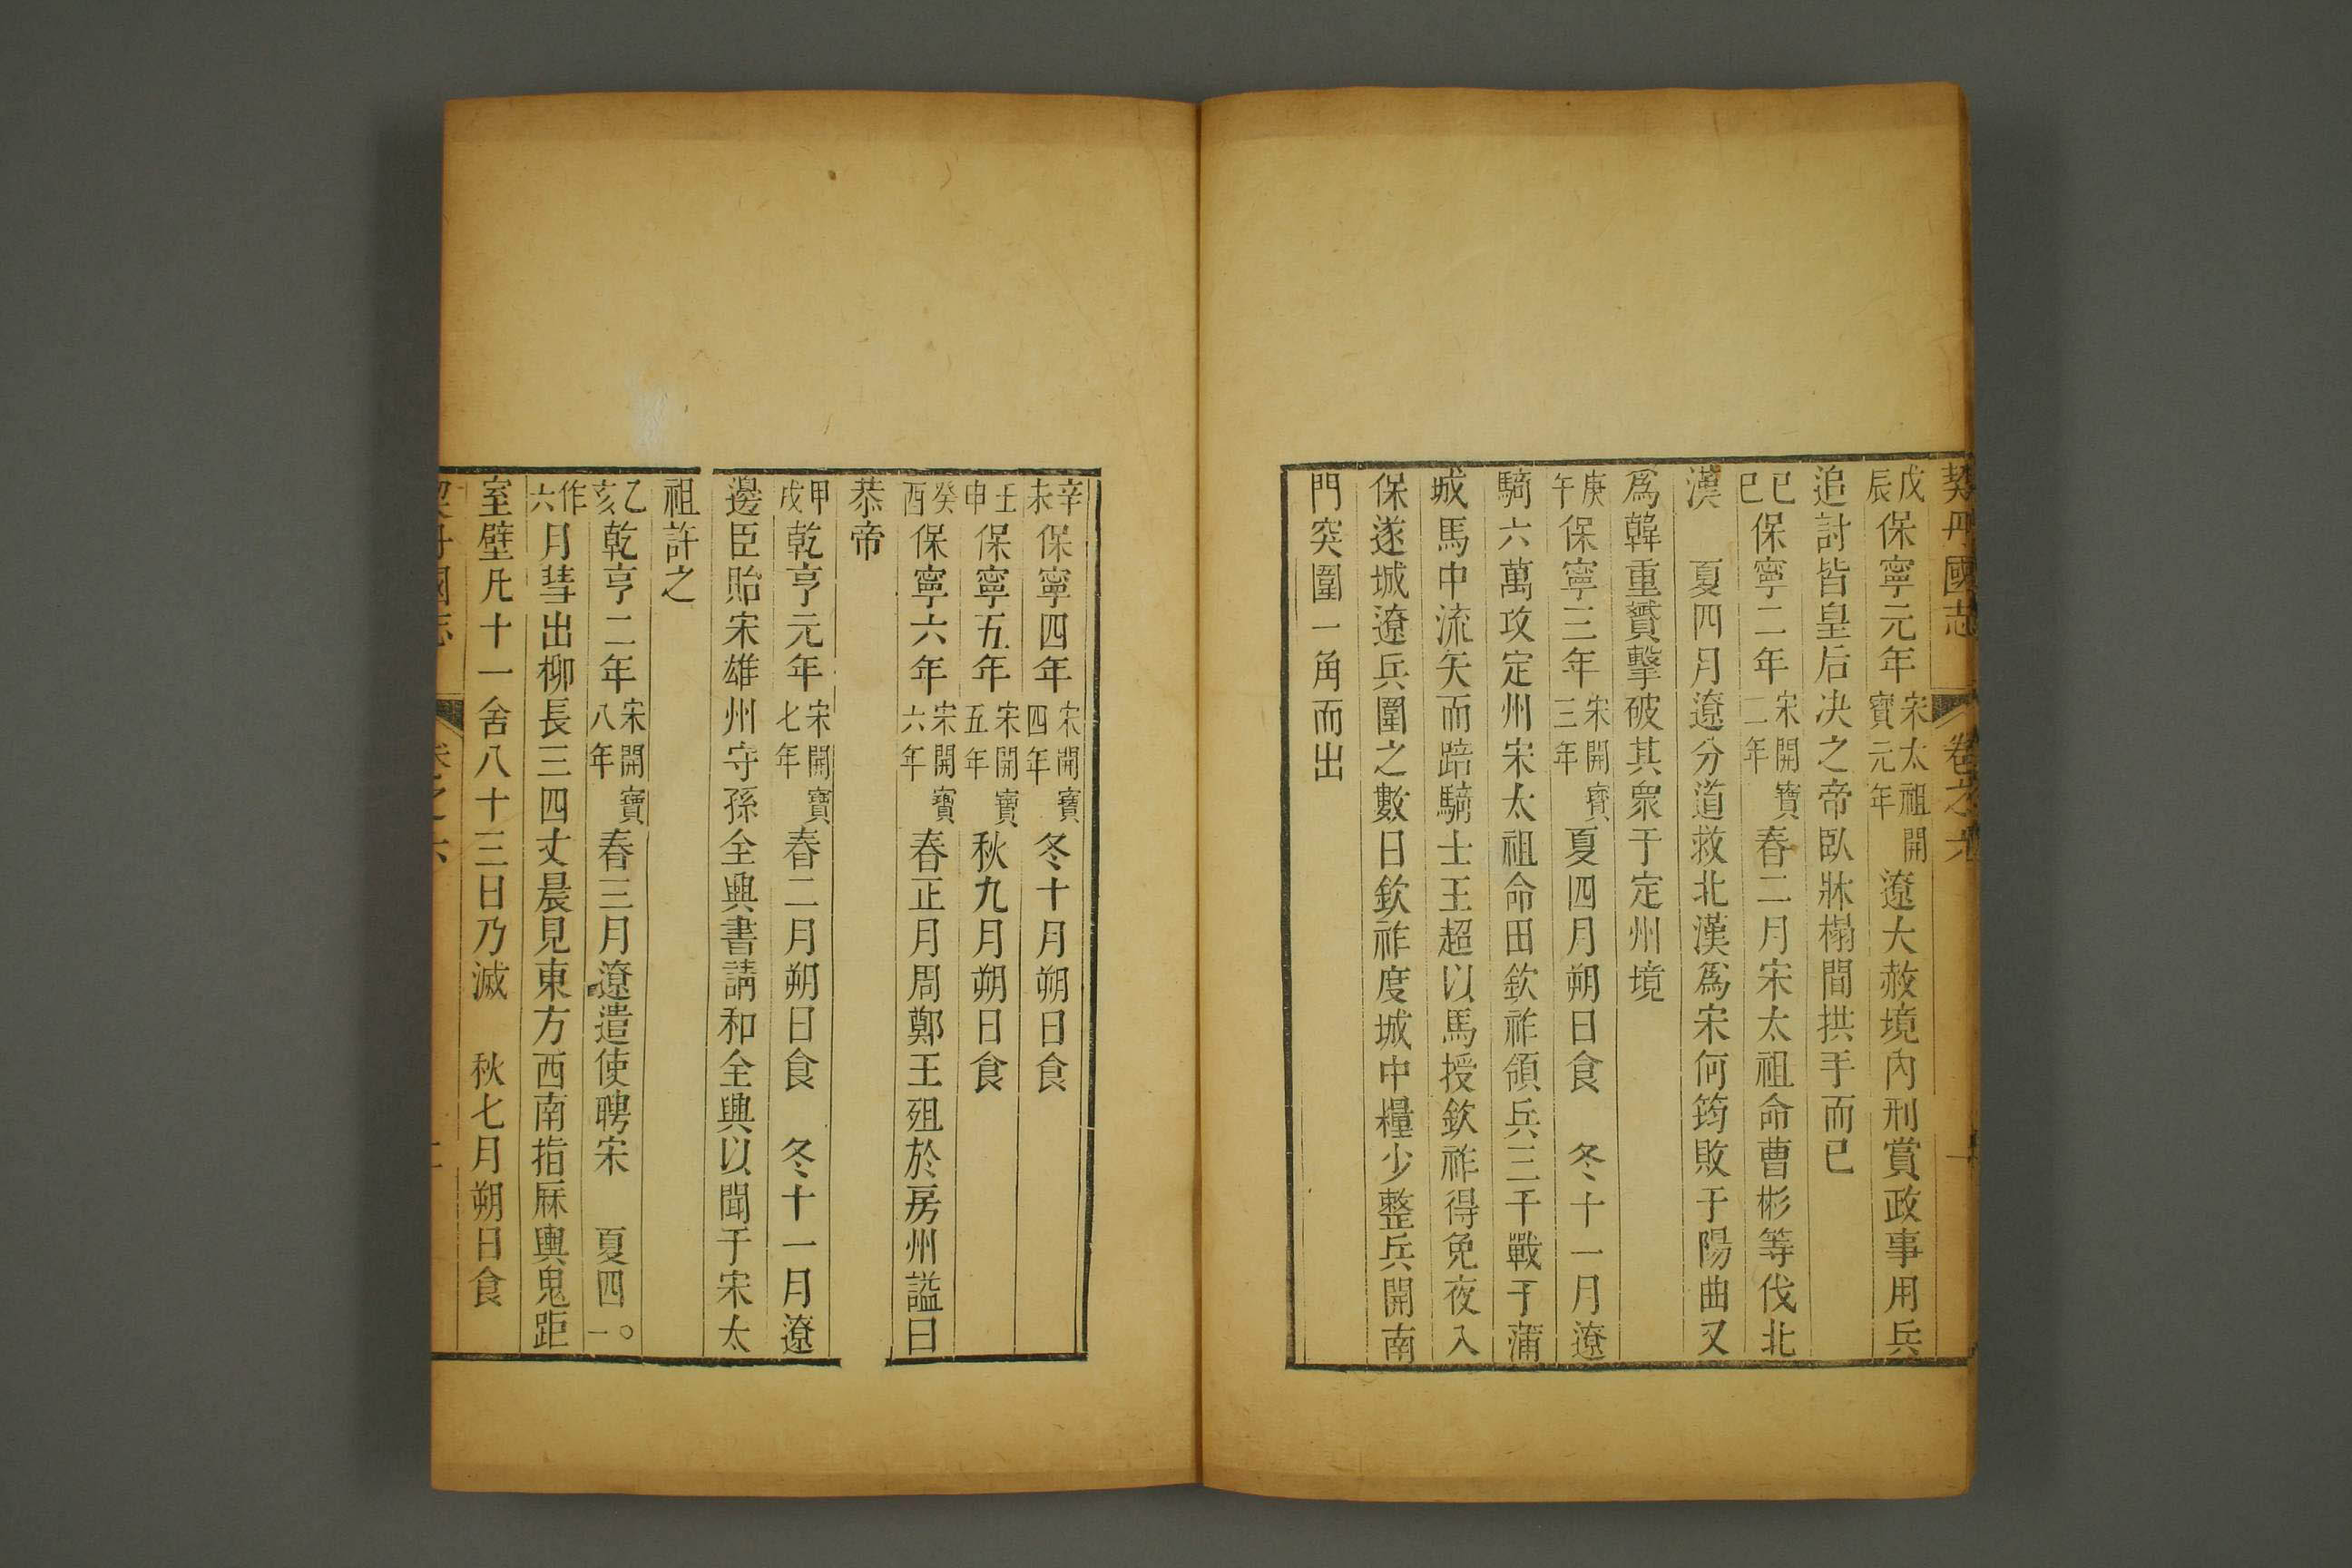 契丹國志 卷之六 一
戊辰保寧元年宋太祖開寶元年遼大赦境內刑賞政事用兵
追討皆皇后决之帝臥牀榻間拱手而已
己巳保寧二年宋開寶二年春二月宋太祖命曹彬等伐北
漢 夏四月遼分道救北漢爲宋何筠敗于陽曲又
爲韓重贇擊破其衆于定州境
庚午保寧三年宋開寶三年夏四月朔日食 冬十一月遼
騎六萬攻定州宋太祖命田欽祚領兵三千戰于蒲
城馬中流矢而踣騎士王超以馬授欽祚得免夜入
保遂城遼兵圍之數日欽祚度城中糧少整兵開南
門突圍一角而出
辛未保寧四年宋開寶四年冬十月朔日食
壬申保寧五年宋開寶五年秋九月朔日食
癸酉保寧六年宋開寶六年春正月周鄭王殂於房州諡曰
恭帝
甲戌乾亨元年宋開寶七年春二月朔日食 冬十一月遼
邊臣貽宋雄州守孫全興書請和全興以聞于宋太
祖許之
乙亥乾亨二年宋開寶八年春三月遼遣使聘宋 夏四○一
作六月彗出柳長三四丈晨見東方西南指厤輿鬼距
室壁凡十一舍八十三日乃滅 秋七月朔日食
契丹國志 卷之六 二